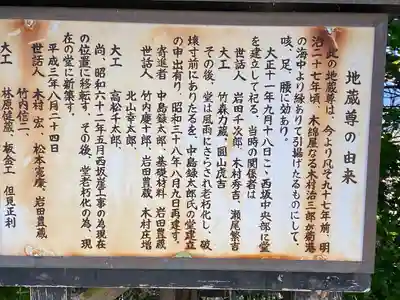 地蔵尊の由来
此の地蔵尊は、今より凡そ九十七年前、明
治二十七年頃、木綿屋なる木村治三郎が菊港
の海中より縁ありて引揚げたるものにして、
咳、足、腰に効あり。
大正十一年九月十八日ころ、西坂中央部に堂
を建立して祀る、当時の関係者は
世話人 岩田千次郎、木村秀吉、瀬尾繁吉
大工 竹森力蔵、圓山虎吉
その後、堂は風雨にさらされ老朽化し、破
壊寸前にありたるを、中島録太郎氏の堂建立
の申出有り、昭和三十八年八月九日再建す。
寄進者 中島録太郎、基礎材料 岩田豊蔵
世話人 竹内慶十郎 岩田豊蔵 木村庄増
北山幸太郎、
大工 高松千太郎、
尚、昭和六十二年五月西坂崖工事の為現在
の位置に移転す。その後、堂老朽化の為、現
在の堂に新築す。
平成三年八月二十四日
世話人 木村 宏、松本憲慶、岩田豊蔵
竹内信二、
大工 林原健蔵、板金工 但見正利